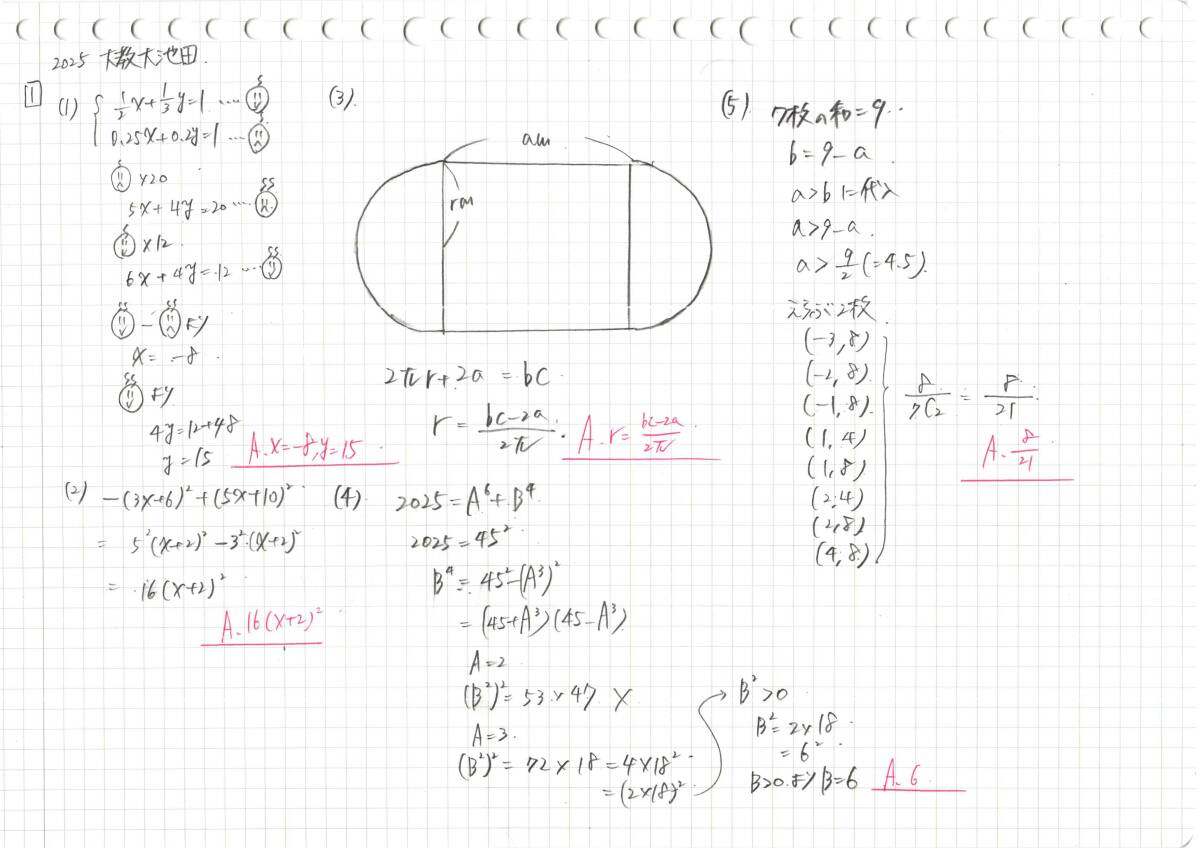 2025 大教大池田.
1
(1) { 1/2x+1/3y=1 …
0.25x+0.2y=1 …
×20
5x+4y=20 …
×12.
6x+4y=12 …
- より
x=-8.
より
4y=12+48
y=15
A. x=-8, y=15
(2) -(3x+6)²+(5x+10)²
= 5²(x+2)²-3²(x+2)²
= 16(x+2)²
A. 16(x+2)²
(3).
am
rm
2πr+2a = bc.
r = bc-2a/2π.
A. r= bc-2a/2π
(4). 2025=A⁶+B⁴
2025=45²
B⁴=45²-(A³)²
=(45+A³)(45-A³)
A=2
(B²)²=53×47 ×
A=3.
(B²)²=72×18=4×18²
=(2×18)²
→ B²>0
B²=2×18
=6²
B>0.より B=6
A. 6
(5). 7枚の和=9.
b=9-a
a>b に代入
a>9-a.
a>9/2(=4.5).
えらぶ2枚
(-3,8)
(-2,8)
(-1,8)
(1,4)
(1,8)
(2,4)
(2,8)
(4,8)
8/7C2 = 8/21.
A. 8/21